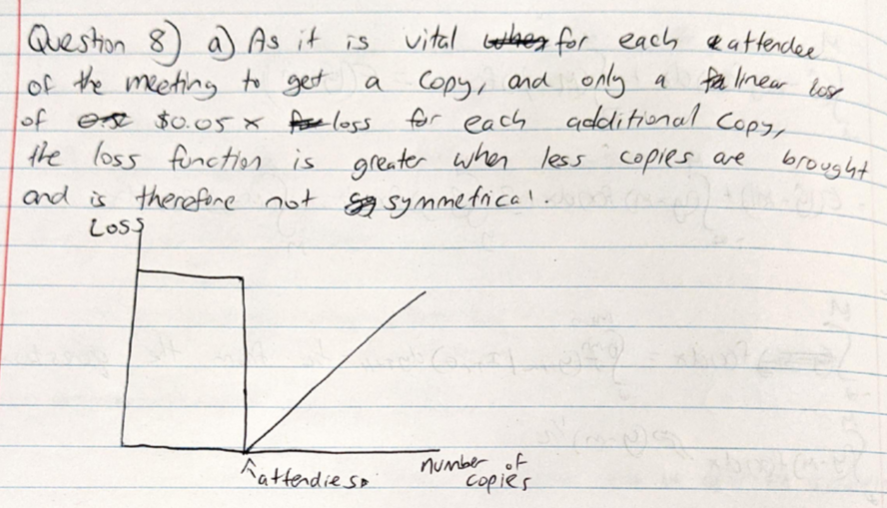 Question 8) a) As it is vital for each attendee
of the meeting to get a copy, and only a linear loss
of $0.05 x loss for each additional copy,
the loss function is greater when less copies are brought
and is therefore not symmetrical.
Loss
attendies
number of
copies